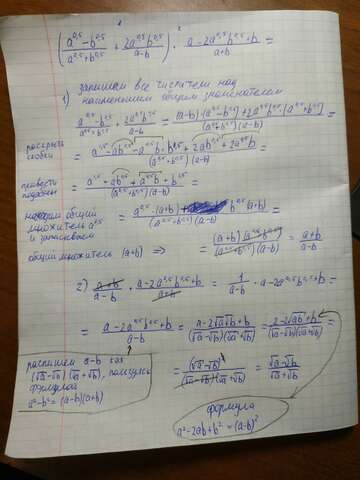 (a^0,5 - b^0,5 / a^0,5 + b^0,5 + 2a^0,5 b^0,5 / a-b) · a - 2a^0,5 b^0,5 + b / a+b =
1) запишем все числители над
наименьшим общим знаменателем
a^0,5 - b^0,5 / a^0,5 + b^0,5 + 2a^0,5 b^0,5 / a-b = (a-b)·(a^0,5 - b^0,5) + 2a^0,5 b^0,5·(a^0,5 + b^0,5) / (a^0,5 + b^0,5)(a-b) =
раскрыть скобки = a^1,5 - ab^0,5 - a^0,5 b + b^1,5 + 2ab^0,5 + 2a^0,5 b / (a^0,5 + b^0,5)·(a-b) =
привести подобные = a^1,5 + ab^0,5 + a^0,5 b + b^1,5 / (a^0,5 + b^0,5)(a-b) =
находим общий = a^0,5·(a+b) + b^0,5 (a+b) / (a^0,5 + b^0,5)(a-b) =
множитель a^0,5
и записываем
общий множитель (a+b) ⇒ = (a+b)(a^0,5 + b^0,5) / (a^0,5 + b^0,5)(a-b) = a+b / a-b
2) a+b / a-b · a - 2a^0,5 b^0,5 + b / a+b = 1 / a-b · a - 2a^0,5 b^0,5 + b =
= a - 2a^0,5 b^0,5 + b / a-b = a - 2√a√b + b / (√a-√b)(√a+√b) = a - 2√ab + b / (√a-√b)(√a+√b) =
распишем a-b как
(√a-√b)(√a+√b), пользуясь
формулой
a²-b² = (a-b)(a+b)
= (√a-√b)² / (√a-√b)(√a+√b) = √a-√b / √a+√b
формула
a²-2ab+b² = (a-b)²